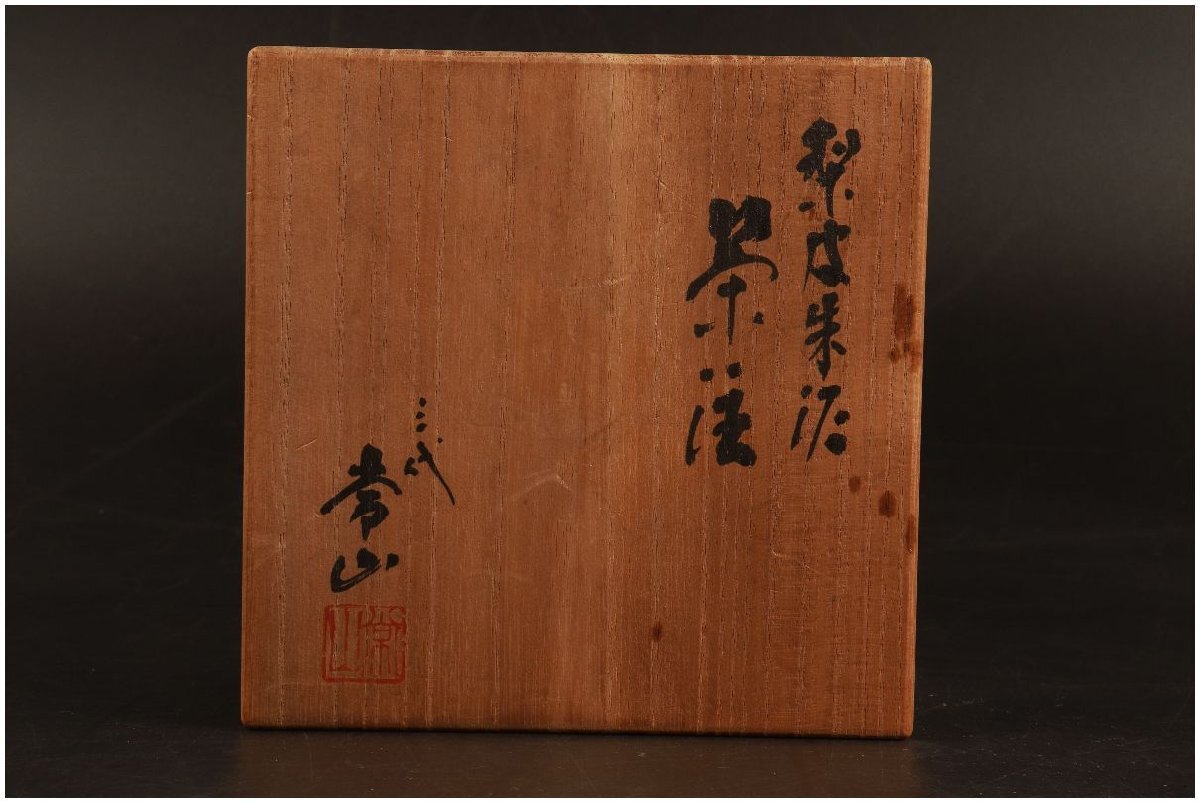 梨皮朱泥
茶注
三代
常山
常山